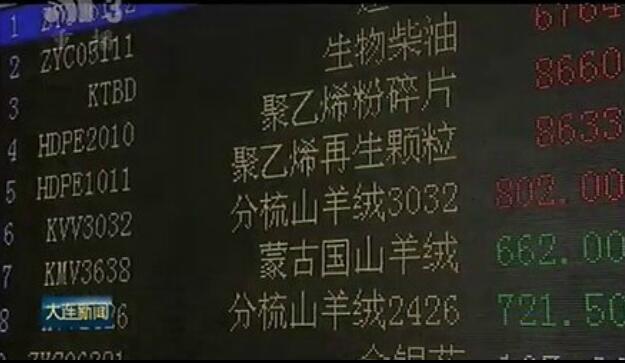 1
2 ZYC05111
3 KTBD 生物柴油 6764
4 HDPE2010 聚乙烯粉碎片 8660
5 HDPE1011 聚乙烯再生颗粒 8633
6 KVV3032 分梳山羊绒3032 802.00
7 KMV3638 蒙古国山羊绒 662.00
8 分梳山羊绒2426 721.50
大连新闻